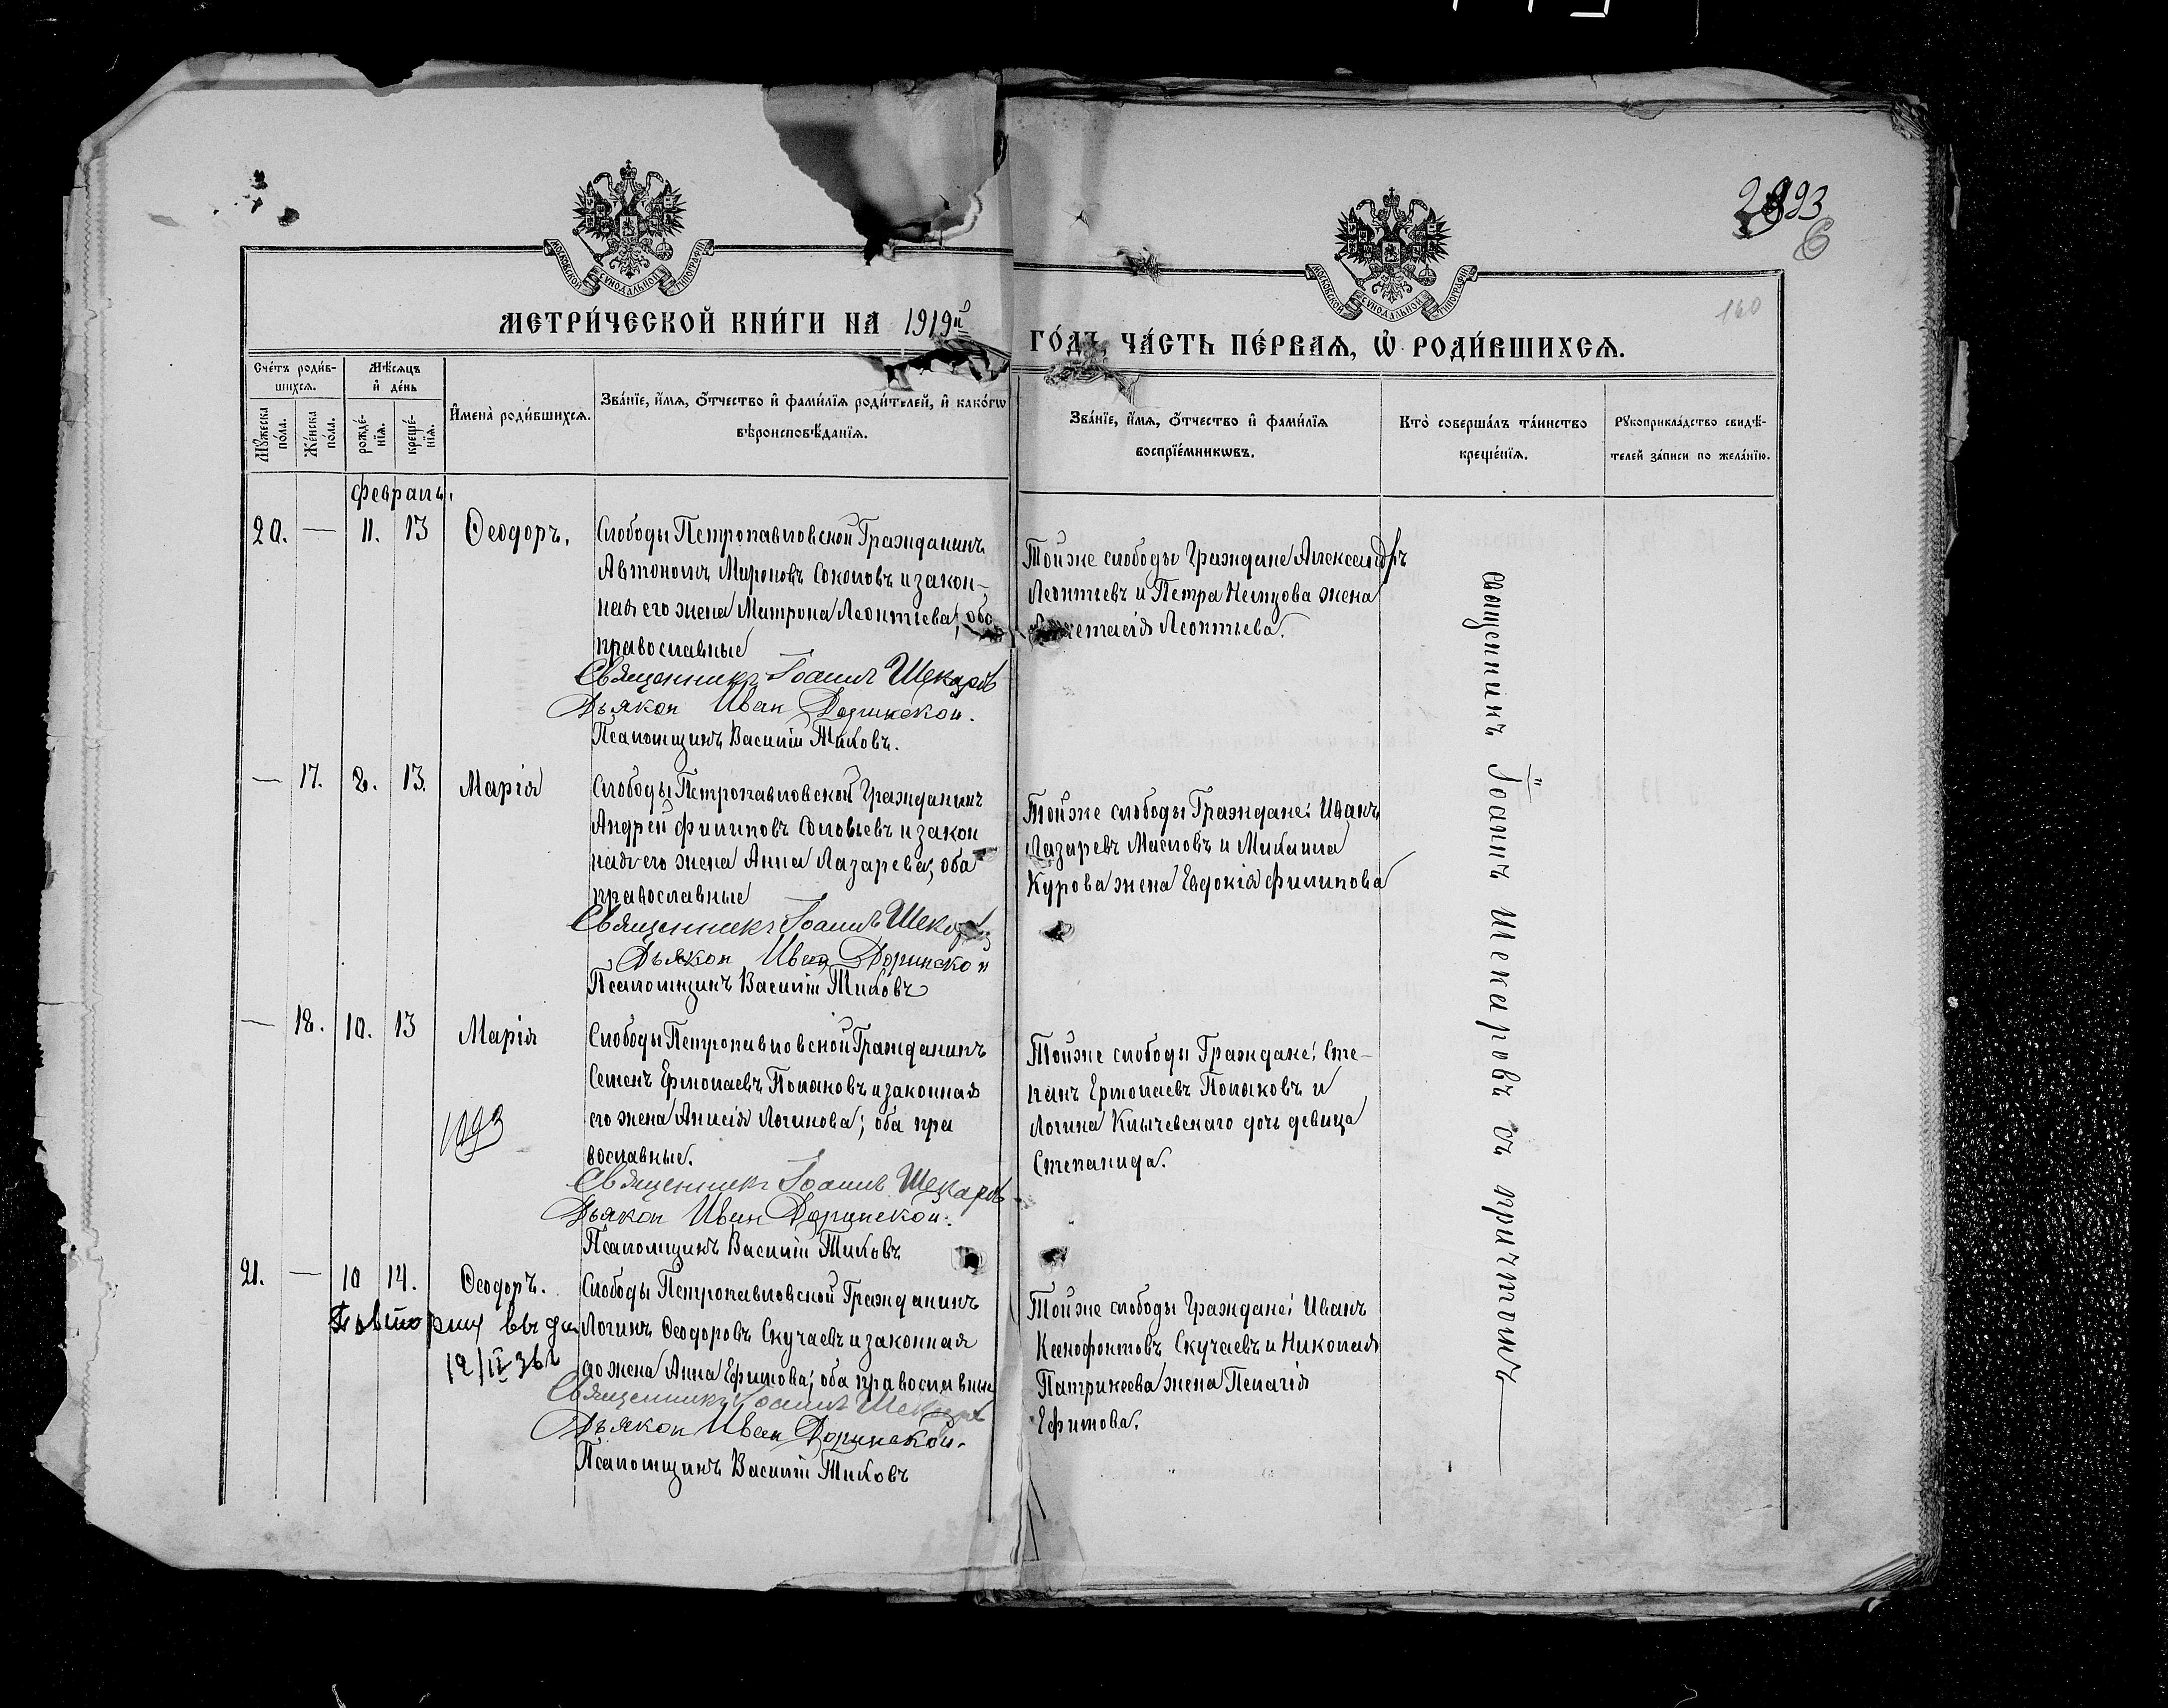 2893
6
160
МОСКОВСКОЙ СѴНОДАЛЬНОЙ ТИПОГРАФІИ
МОСКОВСКОЙ СѴНОДАЛЬНОЙ ТИПОГРАФІИ
МЕТРИ́ЧЕСКОЙ КНИ́ГИ НА 1919й
ГО́ДЪ, ЧА́СТЬ ПЕ́РВАЯ, Ѡ РОДИ́ВШИХСЯ.
Сче́тъ роди́в-
шихся.
Мꙋ́жеска по́ла.
Же́нска по́ла.
Мѣ́сяцъ
и҆ де́нь
рожде́-
нїя.
креще́-
нїя.
И҆мена̀ роди́вшихся.
Зва́нїе, и҆́мя, ѻ҆́тчество и҆ фами́лїя роди́телей, и҆ како́гѡ
вѣроисповѣ́данїя.
Зва́нїе, и҆́мя, ѻ҆́тчество и҆ фами́лїя
воспрїе́мникѡвъ.
Кто̀ соверша́лъ та́инство
креще́нїя.
Рꙋкоприкла́дство свидѣ́-
телей за́писи по жела́нїю.
Февраль.
20. — 11. 13 Ѳеодоръ.
Слободы Петропавловской Гражданинъ
Автономъ Мироновъ Соколовъ и закон-
ная его жена Матрона Леонтіева, оба
православные
Священникъ Іоаннъ Шекаровъ
Дьякон Иван Доринской.
Псаломщикъ Василій Тиховъ.
Тойже слободы Граждане Александръ
Леонтьевъ и Петра Немцова жена
Леонтьева.
— 17. 8. 13. Марія
Слободы Петропавловской Гражданинъ
Андрей Филиповъ Соловьевъ и закон
ная его жена Анна Лазарева, оба
православные
Священникъ Іоаннъ Шекаровъ
Дьякон Иван Доринской
Псаломщикъ Василій Тиховъ
Тойже слободы Граждане: Иванъ
Лазаревъ Масловъ и Михаила
Курова жена Евдокія Филипова
— 18. 10. 13 Марія
Слободы Петропавловской Гражданинъ
Семенъ Ермолаевъ Поляковъ и законная
его жена Анисія Логинова; оба пра
вославные.
Священникъ Іоаннъ Шекаровъ
Дьякон Иван Доринской.
Псаломщикъ Василій Тиховъ
Тойже слободы Граждане: Сте-
панъ Ермолаевъ Поляковъ и
Логина Клычевскаго дочь девица
Степанида.
21. — 10 14. Ѳеодоръ.
Слободы Петропавловской Гражданинъ
Логинъ Ѳеодоровъ Скучаевъ и законная
его жена Анна Ефимова; оба православные
Священникъ Іоаннъ Шекаровъ
Дьякон Иван Доринской.
Псаломщикъ Василій Тиховъ
Тойже слободы Граждане: Иванъ
Ксенофонтовъ Скучаевъ и Николая
Патрикеева жена Пелагія
Ефимова.
священникъ Іоаннъ Шекаровъ съ причтомъ